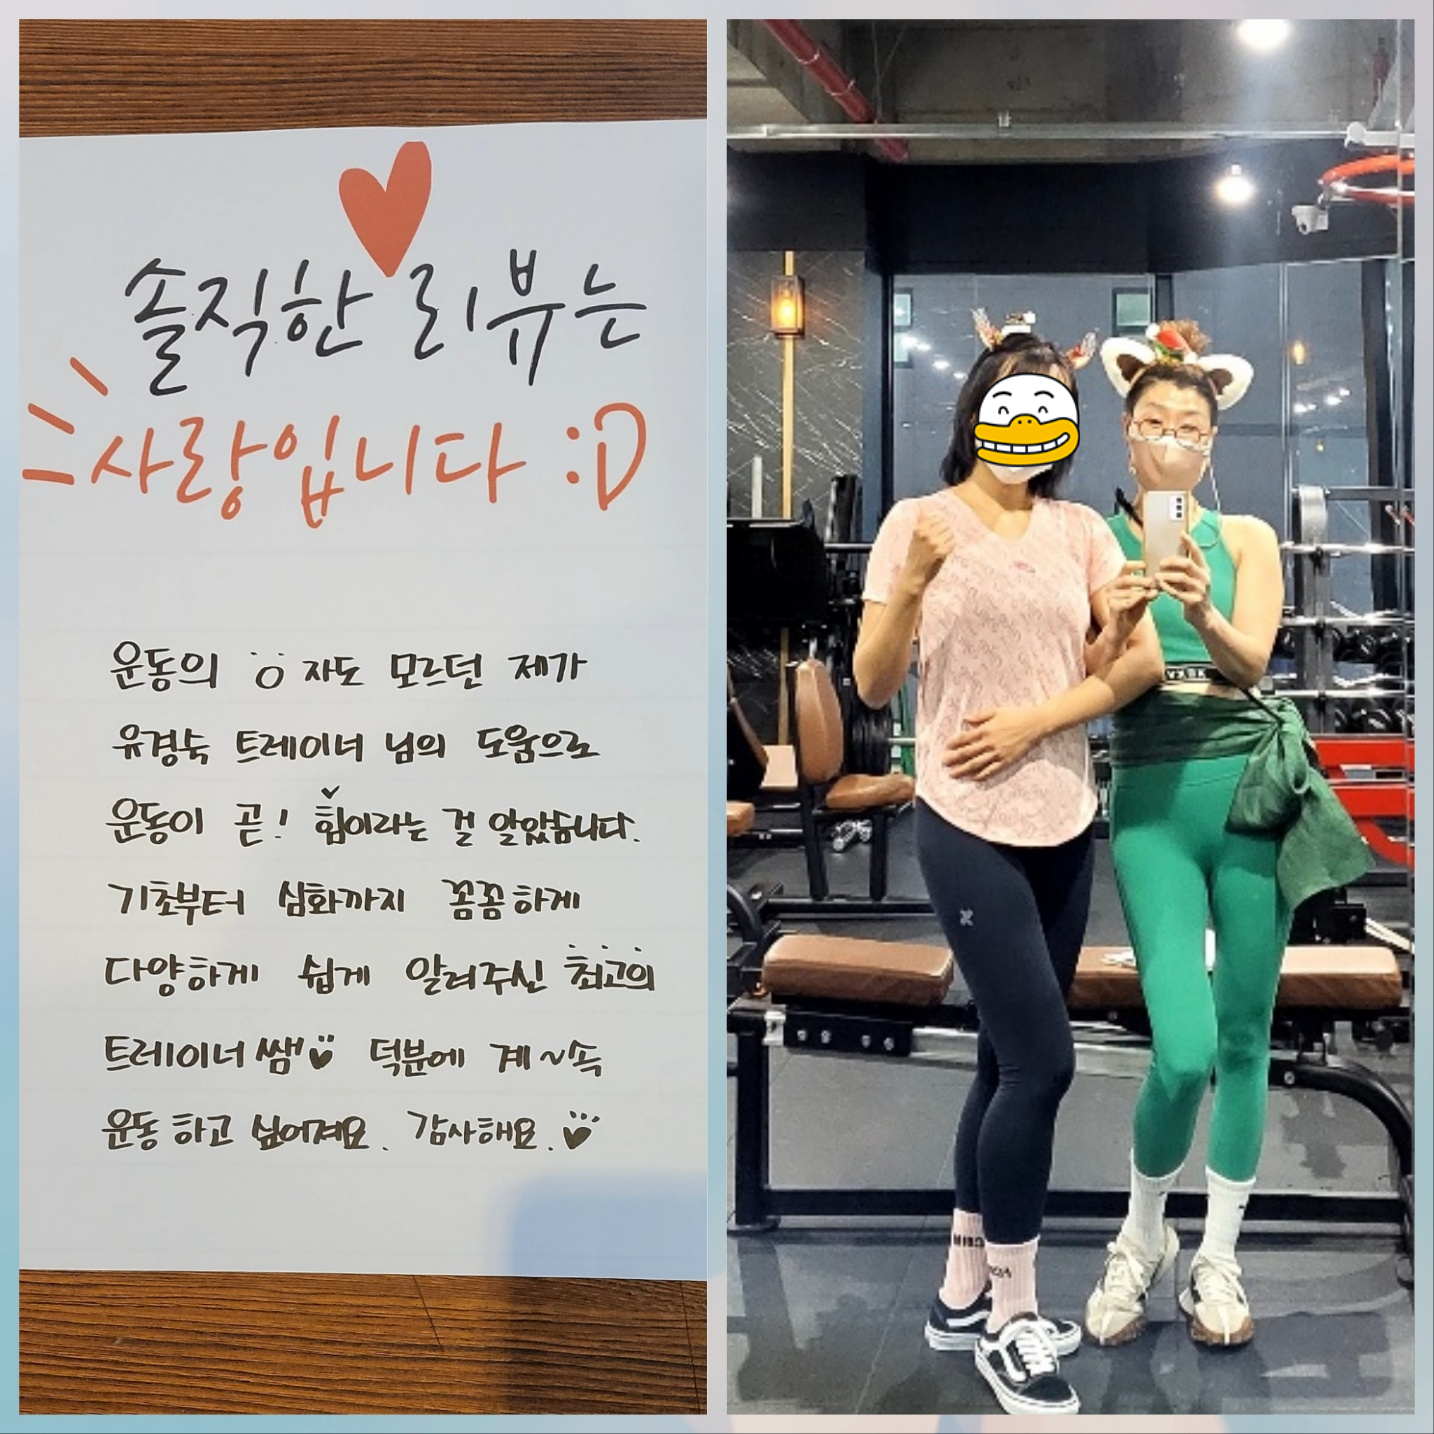 솔직한 리뷰는
사랑입니다 :D
운동의 ㅇ자도 모르던 제가
유경숙 트레이너 님의 도움으로
운동이 곧! 힘이라는 걸 알았습니다.
기초부터 심화까지 꼼꼼하게
다양하게 쉽게 알려주신 최고의
트레이너 쌤♥ 덕분에 계~속
운동하고 싶어져요. 감사해요.♥